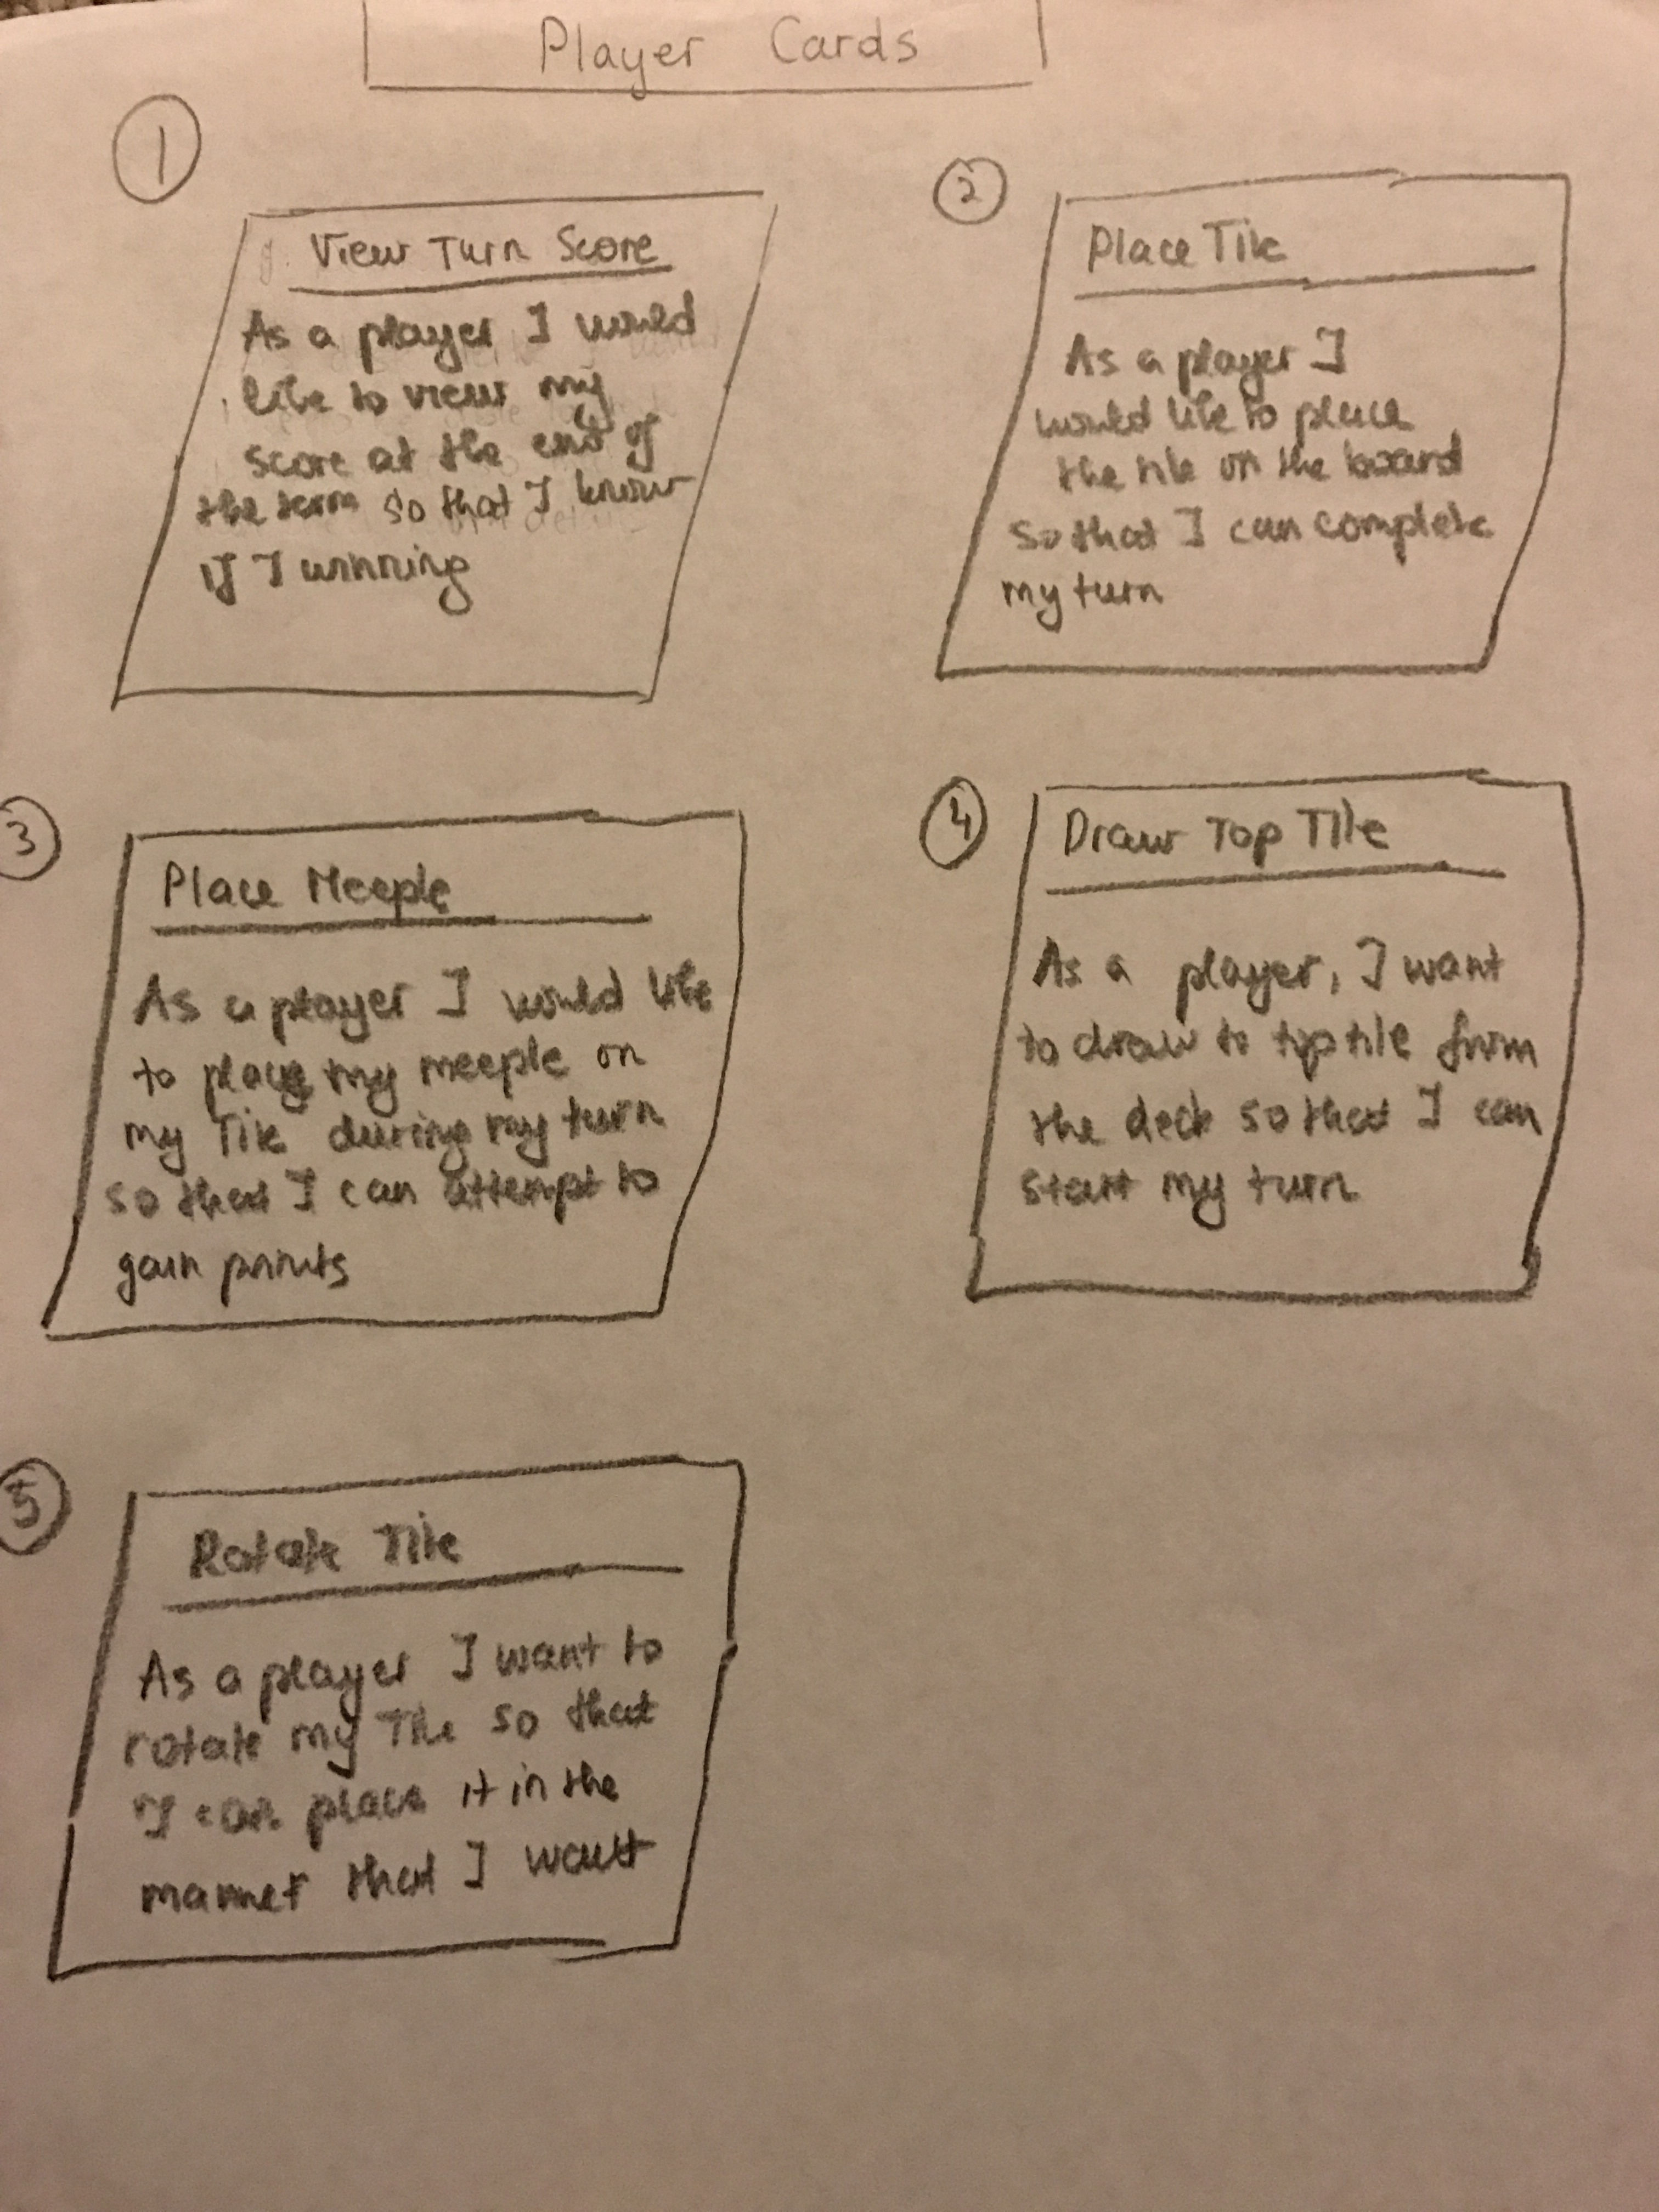 Player Cards
1
View Turn Score
As a player I would
like to view my
score at the end of
the term so that I know
if I winning
2
Place Tile
As a player I
would like to place
the tile on the board
so that I can complete
my turn
3
Place Meeple
As a player I would like
to place my meeple on
my Tile during my turn
so that I can attempt to
gain points
4
Draw Top Tile
As a player, I want
to draw to top tile from
the deck so that I can
start my turn
5
Rotate Tile
As a player I want to
rotate my Tile so that
I can place it in the
manner that I want